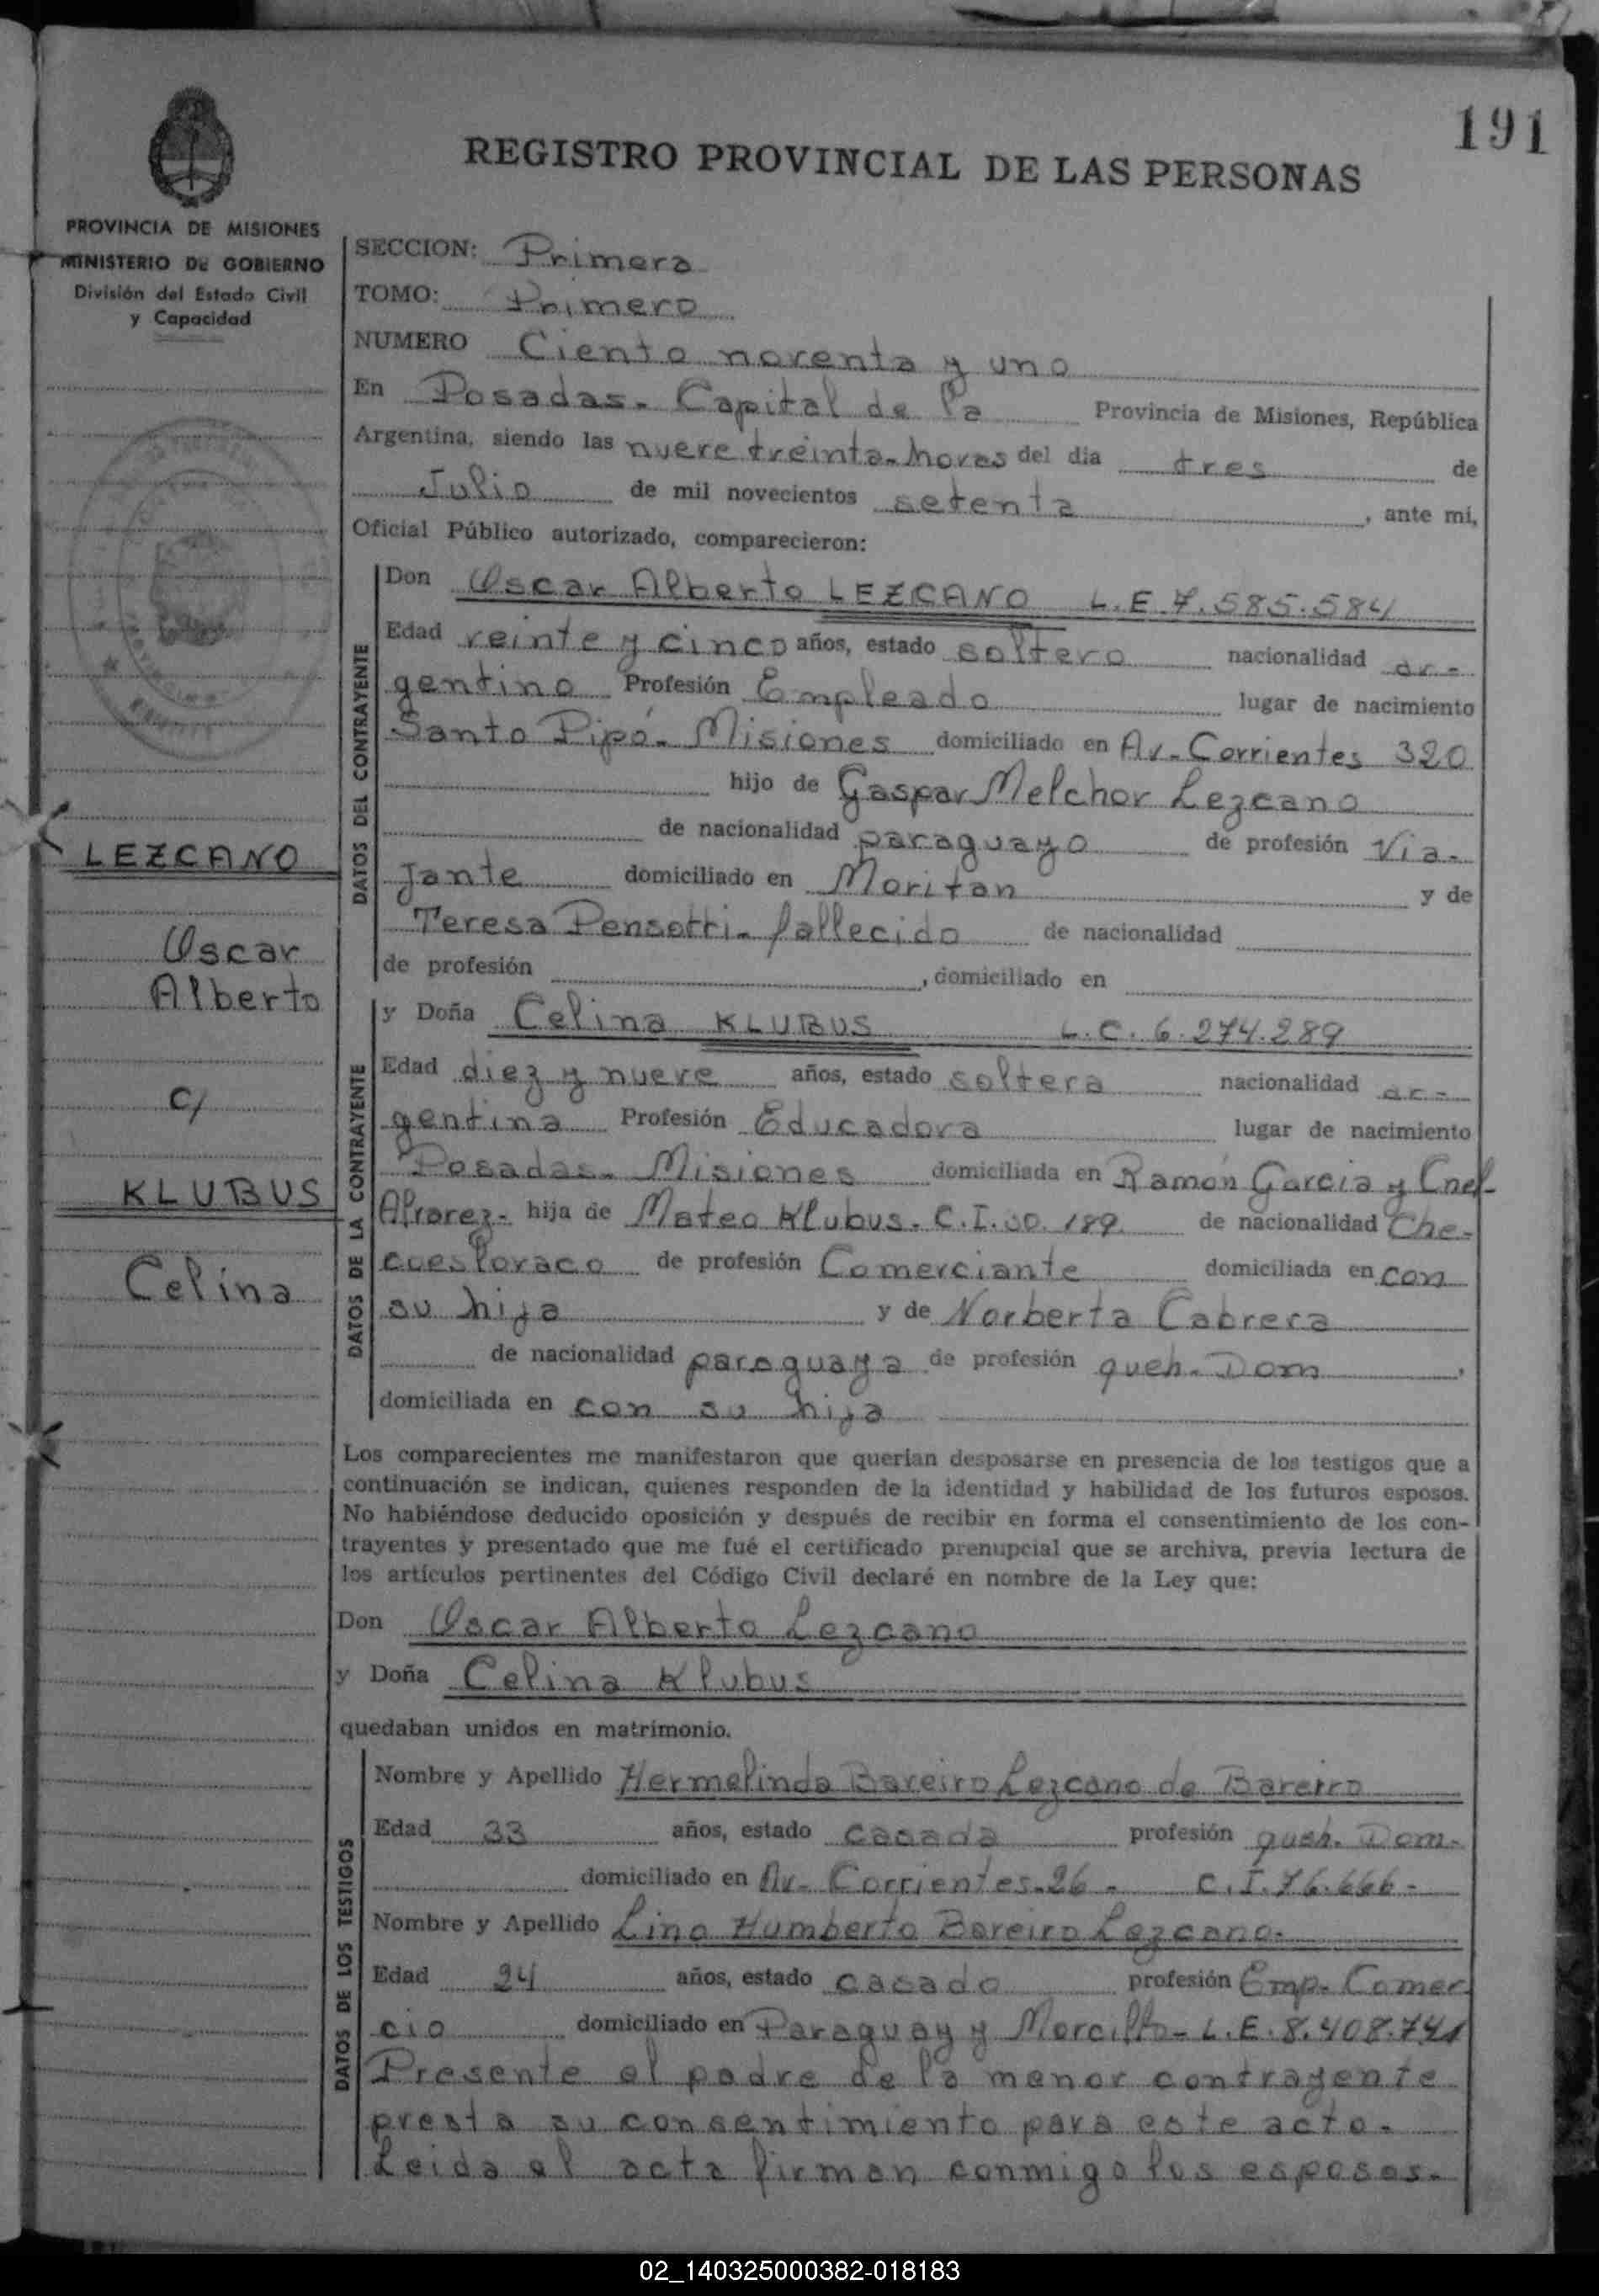 191
REGISTRO PROVINCIAL DE LAS PERSONAS
PROVINCIA DE MISIONES
MINISTERIO DE GOBIERNO
División del Estado Civil
y Capacidad
LEZCANO
Oscar
Alberto
c/
KLUBUS
Celina
SECCION: Primera
TOMO: Primero
NUMERO Ciento noventa y uno
En Posadas - Capital de la Provincia de Misiones, República
Argentina, siendo las nueve treinta horas del dia tres de
Julio de mil novecientos setenta, ante mí,
Oficial Público autorizado, comparecieron:
DATOS DEL CONTRAYENTE
Don Oscar Alberto LEZCANO L.E 7.585.584
Edad veinte y cinco años, estado soltero nacionalidad ar-
gentino Profesión Empleado lugar de nacimiento
Santo Pipó - Misiones domiciliado en Av - Corrientes 320
hijo de Gaspar Melchor Lezcano
de nacionalidad paraguayo de profesión Via-
jante domiciliado en Moritan y de
Teresa Pensotti - fallecido de nacionalidad
de profesión , domiciliado en
DATOS DE LA CONTRAYENTE
y Doña Celina KLUBUS L.C. 6.274.289
Edad diez y nueve años, estado soltera nacionalidad ar-
gentina Profesión Educadora lugar de nacimiento
Posadas - Misiones domiciliada en Ramón Garcia y Cnel-
Alvarez - hija de Mateo Klubus - C.I. 189 de nacionalidad Che-
coeslovaco de profesión Comerciante domiciliada en con
su hija y de Norberta Cabrera
de nacionalidad paraguaya de profesión queh. Dom ,
domiciliada en con su hija
Los comparecientes me manifestaron que querían desposarse en presencia de los testigos que a
continuación se indican, quienes responden de la identidad y habilidad de los futuros esposos.
No habiéndose deducido oposición y después de recibir en forma el consentimiento de los con-
trayentes y presentado que me fué el certificado prenupcial que se archiva, previa lectura de
los artículos pertinentes del Código Civil declaré en nombre de la Ley que:
Don Oscar Alberto Lezcano
y Doña Celina Klubus
quedaban unidos en matrimonio.
DATOS DE LOS TESTIGOS
Nombre y Apellido Hermelinda Bareiro Lezcano de Bareiro
Edad 33 años, estado casada profesión queh. Dom -
domiciliado en Av - Corrientes - 26 - C.I. 76.666 -
Nombre y Apellido Lino Humberto Bareiro Lezcano -
Edad 24 años, estado casado profesión Emp - Comer
cio domiciliado en Paraguay y Morcillo - L.E. 8.408.741
Presente el padre de la menor contrayente
presta su consentimiento para este acto -
Leida el acta firman conmigo los esposos -
02_140325000382-018183